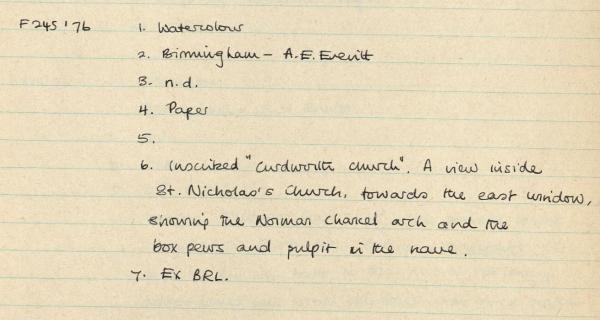 F245'76 1. Watercolour
2. Birmingham - A.E. Everitt
3. n.d.
4. Paper
5.
6. Inscribed "Curdworth church". A view inside
St. Nicholas's Church, towards the east window,
showing the Norman chancel arch and the
box pews and pulpit in the nave.
7. Ex BRL.